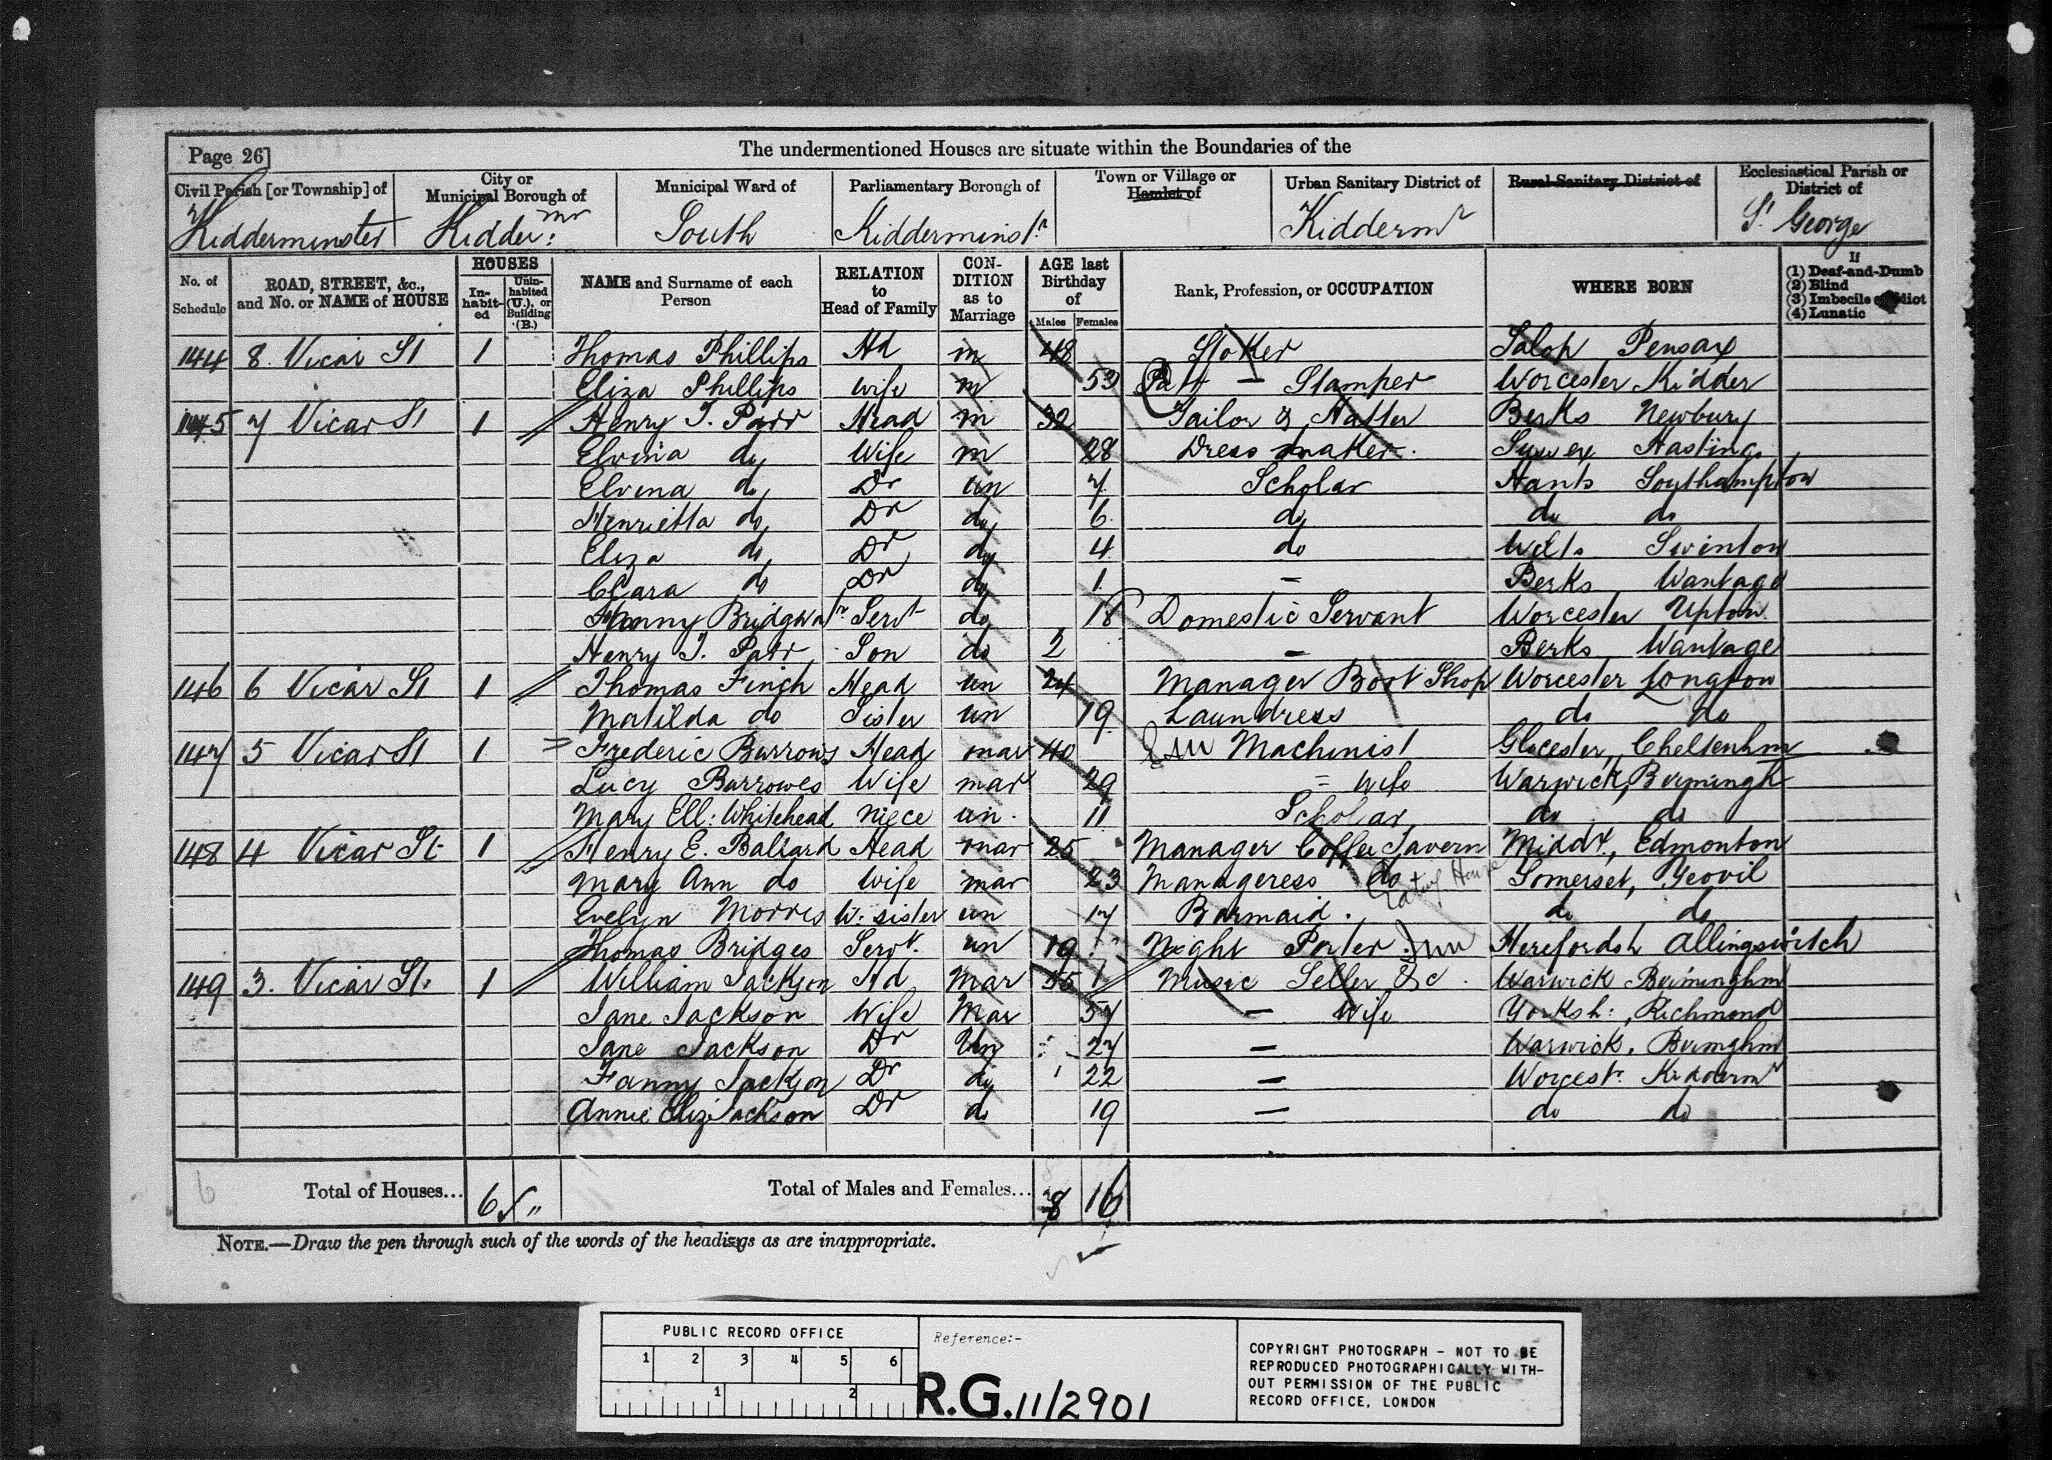 Page 26]
The undermentioned Houses are situate within the Boundaries of the
Civil Parish [or Township] of
Kidderminster
City or Municipal Borough of
Kidder: mr
Municipal Ward of
South
Parliamentary Borough of
Kidderminstr
Town or Village or Hamlet of
Urban Sanitary District of
Kidderm r
Rural Sanitary District of
Ecclesiastical Parish or District of
St George
No. of Schedule
ROAD, STREET, &c., and No. or NAME of HOUSE
HOUSES
In-habit-ed
Unin-habited (U.), or Building (B.)
NAME and Surname of each Person
RELATION to Head of Family
CON-DITION as to Marriage
AGE last Birthday of
Males Females
Rank, Profession, or OCCUPATION
WHERE BORN
If
(1) Deaf-and-Dumb
(2) Blind
(3) Imbecile or Idiot
(4) Lunatic
144 8. Vicar St 1 Thomas Phillips Hd m 48 Stoker Salop Pensax
Eliza Phillips Wife m 53 Patt - Stamper Worcester Kidder
145 7 Vicar St 1 Henry T. Parr Head m 32 Tailor & Hatter Berks Newbury
Elvina do Wife m 28 Dress maker. Sussex Hastings
Elvina do Dr un 7 Scholar Hants Southampton
Henrietta do Dr do 6 do do do
Eliza do Dr do 4 do Wilts Swinton
Clara do Dr do 1 - Berks Wantage
Fanny Bridgwatr Servt do 18 Domestic Servant Worcester Upton
Henry T. Parr Son do 2 - Berks Wantage
146 6 Vicar St 1 Thomas Finch Head un 24 Manager Boot Shop Worcester Longdon
Matilda do Sister un 19 Laundress do do
147 5 Vicar St 1 Frederic Burrows Head mar 40 Machinist Glocester, Cheltenhm
Lucy Burrowes Wife mar 29 = Wife Warwick, Birmingh
Mary Ell: Whitehead niece un. 11 Scholar do do
148 4 Vicar St 1 Henry E. Ballard Head mar 25 Manager Coffee Tavern Middx, Edmonton
Mary Ann do Wife mar 23 Manageress do + Eating House Somerset, Yeovil
Evelyn Morris W. sister un 17 Barmaid. do do
Thomas Bridges Servt. un 19 Night Porter Inn Herefordsh Allingswitch
149 3. Vicar St. 1 William Jackson Hd Mar 55 Music Seller &c. Warwick Birminghm
Jane Jackson Wife Mar 57 - Wife Yorksh:, Richmond
Jane Jackson Dr Un 27 - Warwick. Birmghm
Fanny Jackson Dr do 22 - Worcestr. Kidderm r
Annie Eliz Jackson Dr do 19 - do do
6 Total of Houses... 6 Total of Males and Females... 8 16
NOTE.—Draw the pen through such of the words of the headings as are inappropriate.
PUBLIC RECORD OFFICE
1 2 3 4 5 6
1 2
Reference:-
R.G. 11/2901
COPYRIGHT PHOTOGRAPH - NOT TO BE
REPRODUCED PHOTOGRAPHICALLY WITH-
OUT PERMISSION OF THE PUBLIC
RECORD OFFICE, LONDON